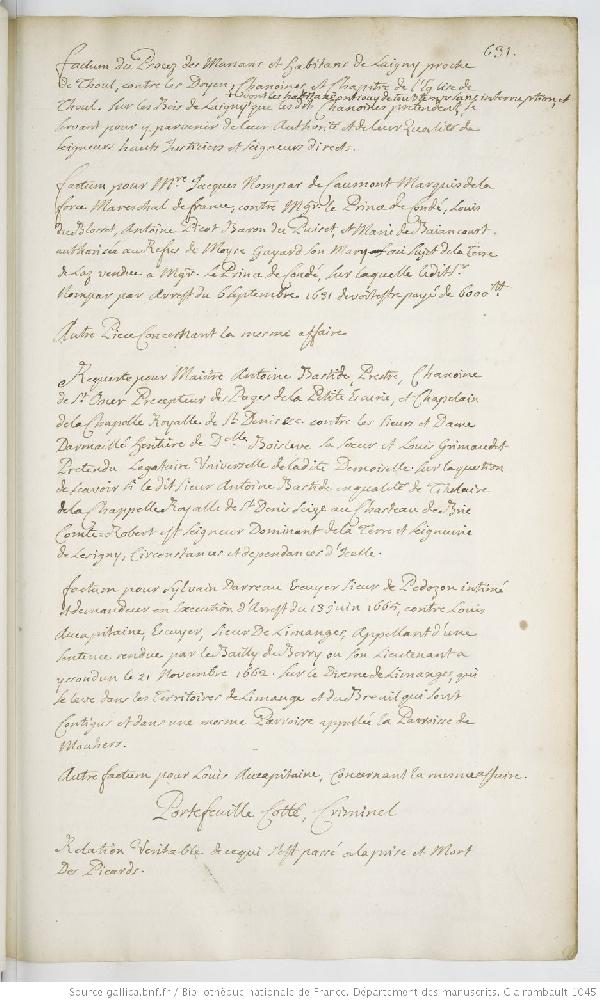 631.
factum du Procez des Manans et habitans de Luigny proche
de Thoul, contre les Doyen, Chanoines et Chapitre de l'Eglise de
Thoul. Sur les Bois de Luigny que lesd. Chanoines pretendent, se
+ dont les habitans ont jouy de tout temps sans interruption, et
servant pour y parvenir de leur Authorité et de leur Qualité de
seigneurs hauts Justiciers et seigneurs directs.
factum pour Mre. Jacques Nompar de Caumont Marquis de la
force Mareschal de france, contre Mgr. le Prince de Condé, Louis
du Antoine Picot Baron du Puiset, et Marie de Baiancourt
authorisée au Refus de Moyse Gayard son Mary au sujet de la Terre
de Laz vendue a Mgr. le Prince de Condé, sur laquelle ledit Sr.
Nompar par Arrest du 6 Septembre 1631 devoit estre payé de 6000tt
Autre Piece Concernant la mesme affaire
Requeste pour Maistre Antoine Bastide, Prestre, Chanoine
de St. Omer Precepteur des Pages de la Petite Escurie, et Chapelain
de la Chapelle Royalle de St. Denis &c. contre les Sieurs et Dame
Darmaillé heritiere de Delle. Boisleve sa sœur et Louis Grimaudet
Pretendu Legataire Universelle de ladite Demoiselle sur la question
de scavoir si ledit Sieur Antoine Bastide en qualité de Titulaire
de la Chappelle Royalle de St. Denis scize au Chasteau de Brie
Comte-Robert est seigneur Dominant de la Terre et seigneurie
de Lesigny, Circonstances et dependances d'Icelle.
factum pour Sylvain Darreau Escuyer Sieur de Pedozon intimé
et demandeur en Execution d'Arrest du 13 juin 1665, contre Louis
Aucapitaine, Escuyer, Sieur De Limanges, Appellant d'une
sentence rendue par le Bailly du Berry ou son Lieutenant a
yssoudun le 21 Novembre 1662. sur le Dixme de Limanges, qui
se leve dans les Territoires de Limange et du Breuil qui sont
Contigus et dans une mesme Parroisse appellée la Parroisse de
Mouhers.
Autre factum pour Louis Aucapitaine, Concernant la mesme affaire.
Portefeuille Cotté, Criminel
Relation Veritable de ce qui s'est passé a la prise et Mort
Des Picards.
Source gallica.bnf.fr / Bibliothèque nationale de France. Département des manuscrits. Clairambault 1045